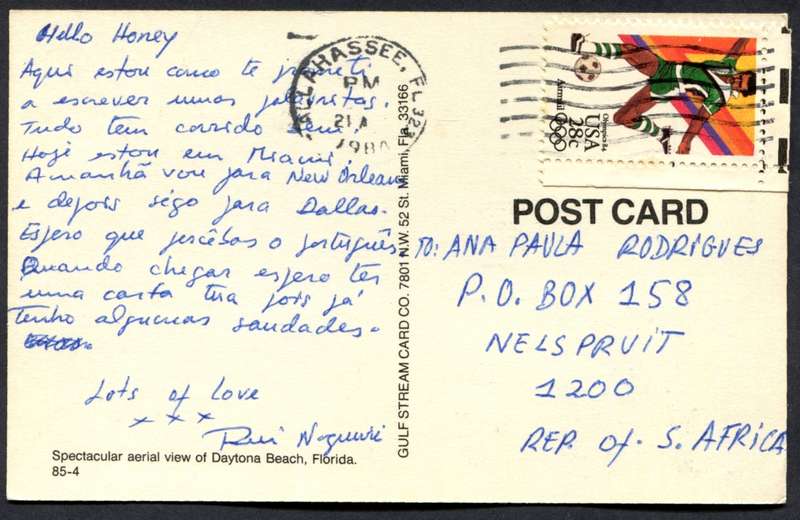 Hello Honey
Aqui estou como te prometi
a escrever umas palavritas.
Tudo tem corrido bem.
Hoje estou em Miami.
Amanhã vou para New Orleans
e depois sigo para Dallas.
Espero que percêbas o português
Quando chegar espero ter
uma carta tua pois já
tenho algumas saudades.
Lots of love
x x x
Rui
Spectacular aerial view of Daytona Beach, Florida.
85-4
GULF STREAM CARD CO. 7801 N.W. 52 St. Miami, Fla. 33166
TALLAHASSEE, FL 323
PM
21
198
Olympics 84
USA
28c
Airmail
POST CARD
TO: ANA PAULA RODRIGUES
P.O. BOX 158
NELSPRUIT
1200
REP. of S. AFRICA